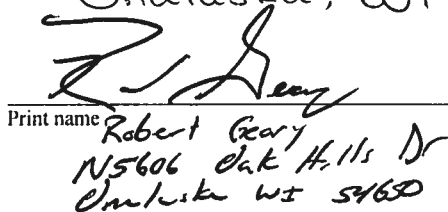 Onalaska, WI
R Geary
Print name Robert Geary
N5606 Oak Hills Dr
Onalaska WI 54650